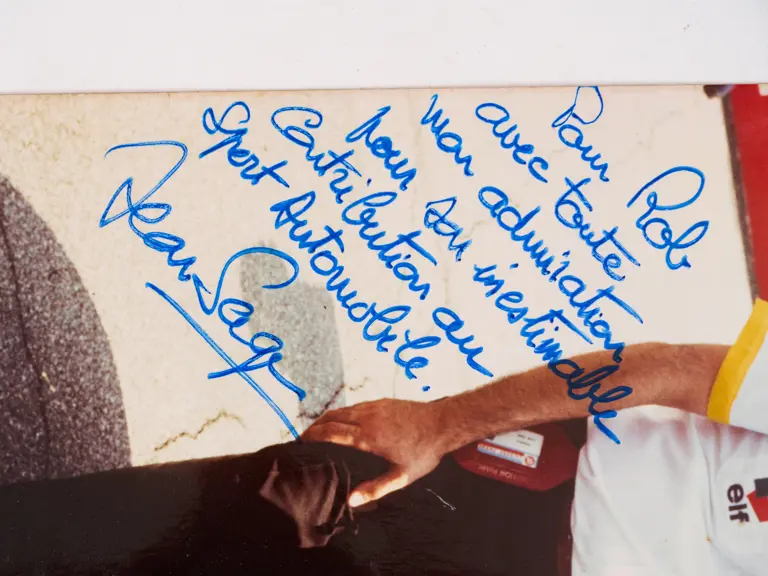 Pour Rob
avec toute
mon admiration
pour son inestimable
Contribution au
Sport Automobile.
Jean Sage
elf